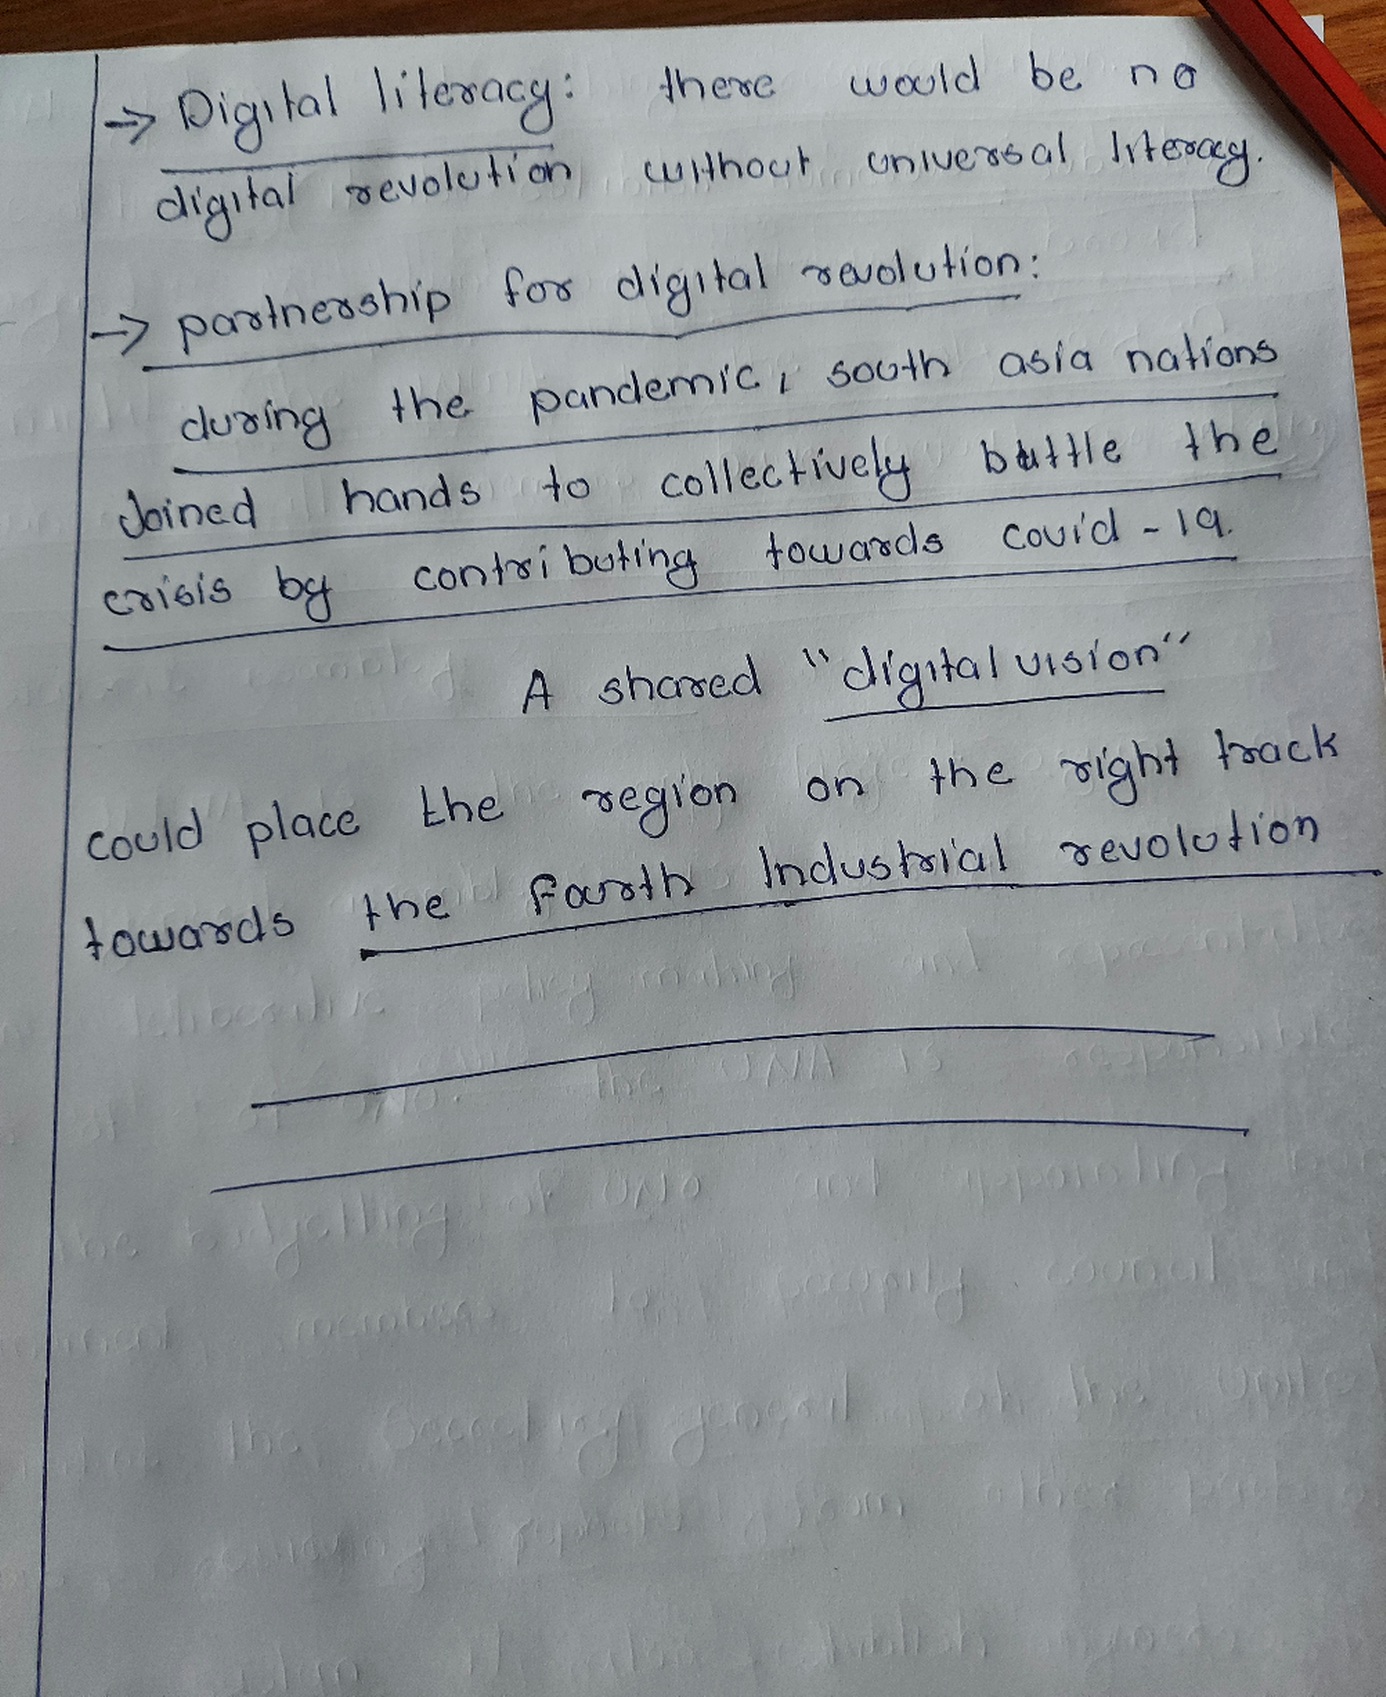 → Digital literacy: there would be no
digital revolution without universal literacy.
→ partnership for digital revolution:
during the pandemic, south asia nations
Joined hands to collectively battle the
crisis by contributing towards covid-19.
A shared "digital vision"
could place the region on the right track
towards the Fourth Industrial revolution